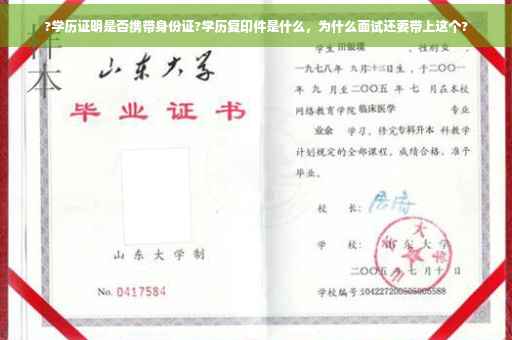 ?学历证明是否携带身份证?学历复印件是什么，为什么面试还要带上这个?
样本
山东大学
毕业证书
山东大学制
No. 0417584
学生 田银环 ，性别女 ，
一九七八年 九月十三日生，于二〇〇一
年 九 月至二〇〇五 年 七 月在本校
网络教育学院 临床医学 专业
业余 学习，修完专科升本 科教学
计划规定的全部课程，成绩合格，准予
毕业。
校 长：
学 校：山东大学
二〇〇五 年 七 月 十 日
学校编号:104227200505005588